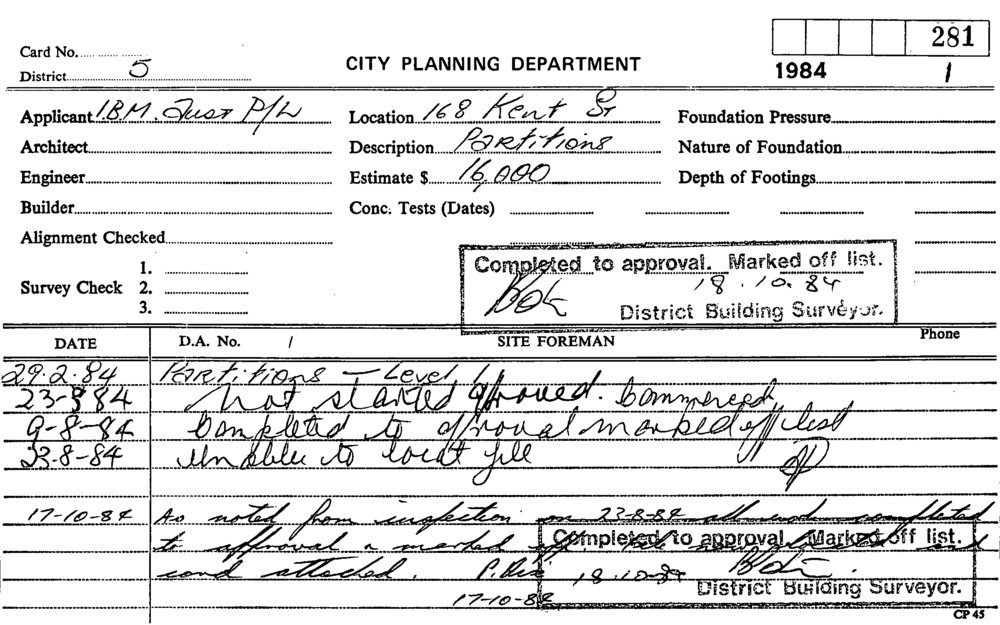 281
Card No.
District 5
CITY PLANNING DEPARTMENT
1984 1
Applicant I.B.M. Aust P/L Location 168 Kent St Foundation Pressure
Architect Description Partitions Nature of Foundation
Engineer Estimate $ 16,000 Depth of Footings
Builder Conc. Tests (Dates)
Alignment Checked
Survey Check 1.
2.
3.
Completed to approval. Marked off list.
18.10.84
District Building Surveyor.
DATE D.A. No. / SITE FOREMAN Phone
29.2.84 Partitions — Level 1
23-3 84 not started . Commenced
9-8-84 Completed to approval marked off list
23.8-84 Unable to locat file
17-10-84 As noted from inspection on 23-8-84 all work completed
to approval & marked off and
card attached.
17-10-84
Completed to approval. Marked off list.
18.10.84
District Building Surveyor.
CP 45